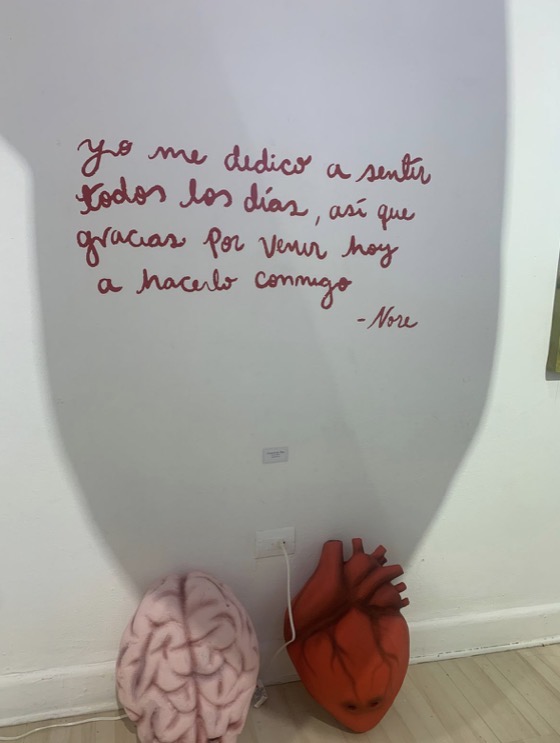 yo me dedico a sentir
todos los días, así que
gracias por venir hoy
a hacerlo conmigo
-Nore